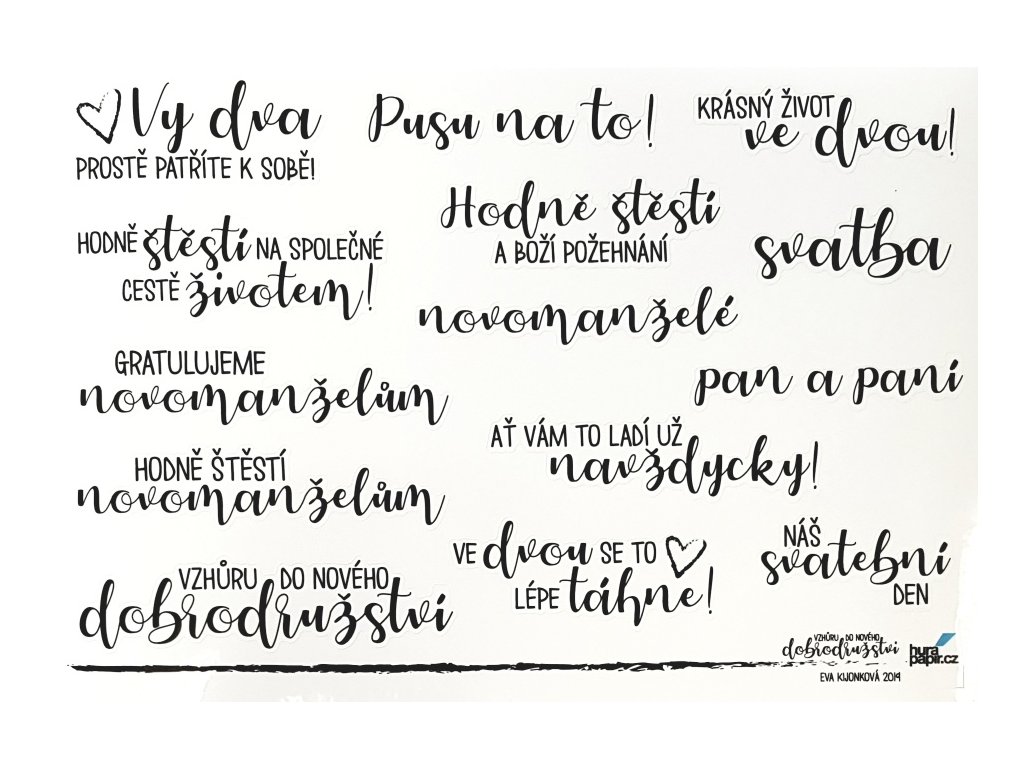 Vy dva
PROSTĚ PATŘÍTE K SOBĚ!
Pusu na to!
KRÁSNÝ ŽIVOT
ve dvou!
HODNĚ štěstí NA SPOLEČNÉ
CESTĚ životem!
Hodně štěstí
A BOŽÍ POŽEHNÁNÍ
svatba
novomanželé
GRATULUJEME
novomanželům
pan a paní
AŤ VÁM TO LADÍ UŽ
navždycky!
HODNĚ ŠTĚSTÍ
novomanželům
VE dvou SE TO
LÉPE táhne!
NÁŠ
svatební
DEN
VZHŮRU DO NOVÉHO
dobrodružství
VZHŮRU DO NOVÉHO
dobrodružství
hura
papir.cz
EVA KIJONKOVÁ 2019